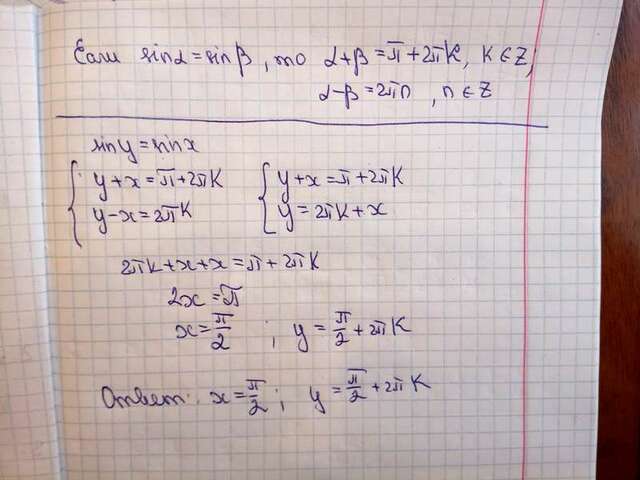 Если sinα = sinβ, то α+β = π + 2πk, k ∈ Z,
α−β = 2πn, n ∈ Z
sin y = sin x
{ y + x = π + 2πk { y + x = π + 2πk
{ y − x = 2πk { y = 2πk + x
2πk + x + x = π + 2πk
2x = π
x = π/2 ; y = π/2 + 2πk
Ответ: x = π/2 ; y = π/2 + 2πk